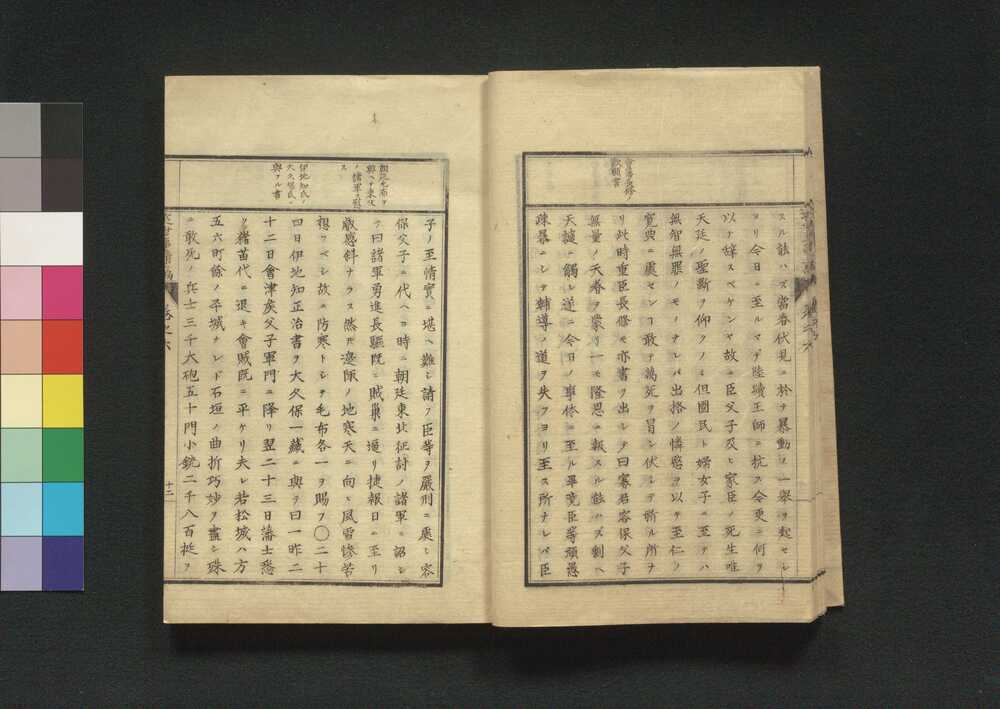 スル詼ハズ當春伏見ニ於テ暴動ノ一舉ヲ起セシ
ヨリ令日ニ至ルマデ陸續王師ニ抗ス令更ニ何ヲ
以テ辞スベケンヤ故ニ臣父子及ヒ家臣ノ死生唯
天廷ノ聖斷ヲ仰クノミ但國民ト婦女子ニ至テハ
無智無罪ノモノナレバ出格ノ憐愍ヲ以テ至仁ノ
寛典ニ處センヿ敢テ萬死ヲ冒シ伏シテ祈ル所ナ
リ此時重臣長修モ亦書ヲ出シテ曰寡君容保父子
無量ノ天眷ヲ蒙リ一モ隆恩ニ報スル能ハズ剰ヘ
天譴ニ觸レ遂ニ今日ノ事体ニ至ル畢竟臣等頑愚
疎暴ニシテ輔導ノ道ヲ失フヨリ至ス所ナレバ臣
子ノ至情實ニ堪ヘ難シ請フ臣等ヲ嚴刑ニ處シ容
保父子ニ代ヘヨ時ニ朝廷東北征討ノ諸軍ニ詔シ
テ曰諸軍勇進長驅既ニ賊巢ニ逼リ捷報日ニ至リ
叡感斜ナラス然ルニ邊陬ノ地寒天ニ向ヒ風雪慘苦
想フベシ故ニ防寒トシテ毛布各一ヲ賜フ〇二十
四日伊地知正治書ヲ大久保一藏ニ與ヲ曰一昨二
十二日會津矦父子軍門ニ降リ翌二十三日藩士悉
ク猪苗代ニ退キ會賊既ニ平ケリ夫レ若松城ハ方
五六町餘ノ平城ナレド石垣ノ曲折巧妙ヲ盡シ殊
ニ敢死ノ兵士三千大砲五十門小銃二千八百挺ヲ
十二